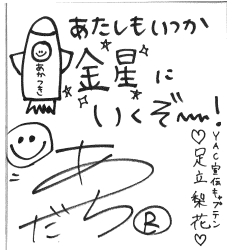 あたしもいつか
金星に
いくぞ〜!
あかつき
YAC宣伝キャプテン
♡足立梨花♡
あだち
R